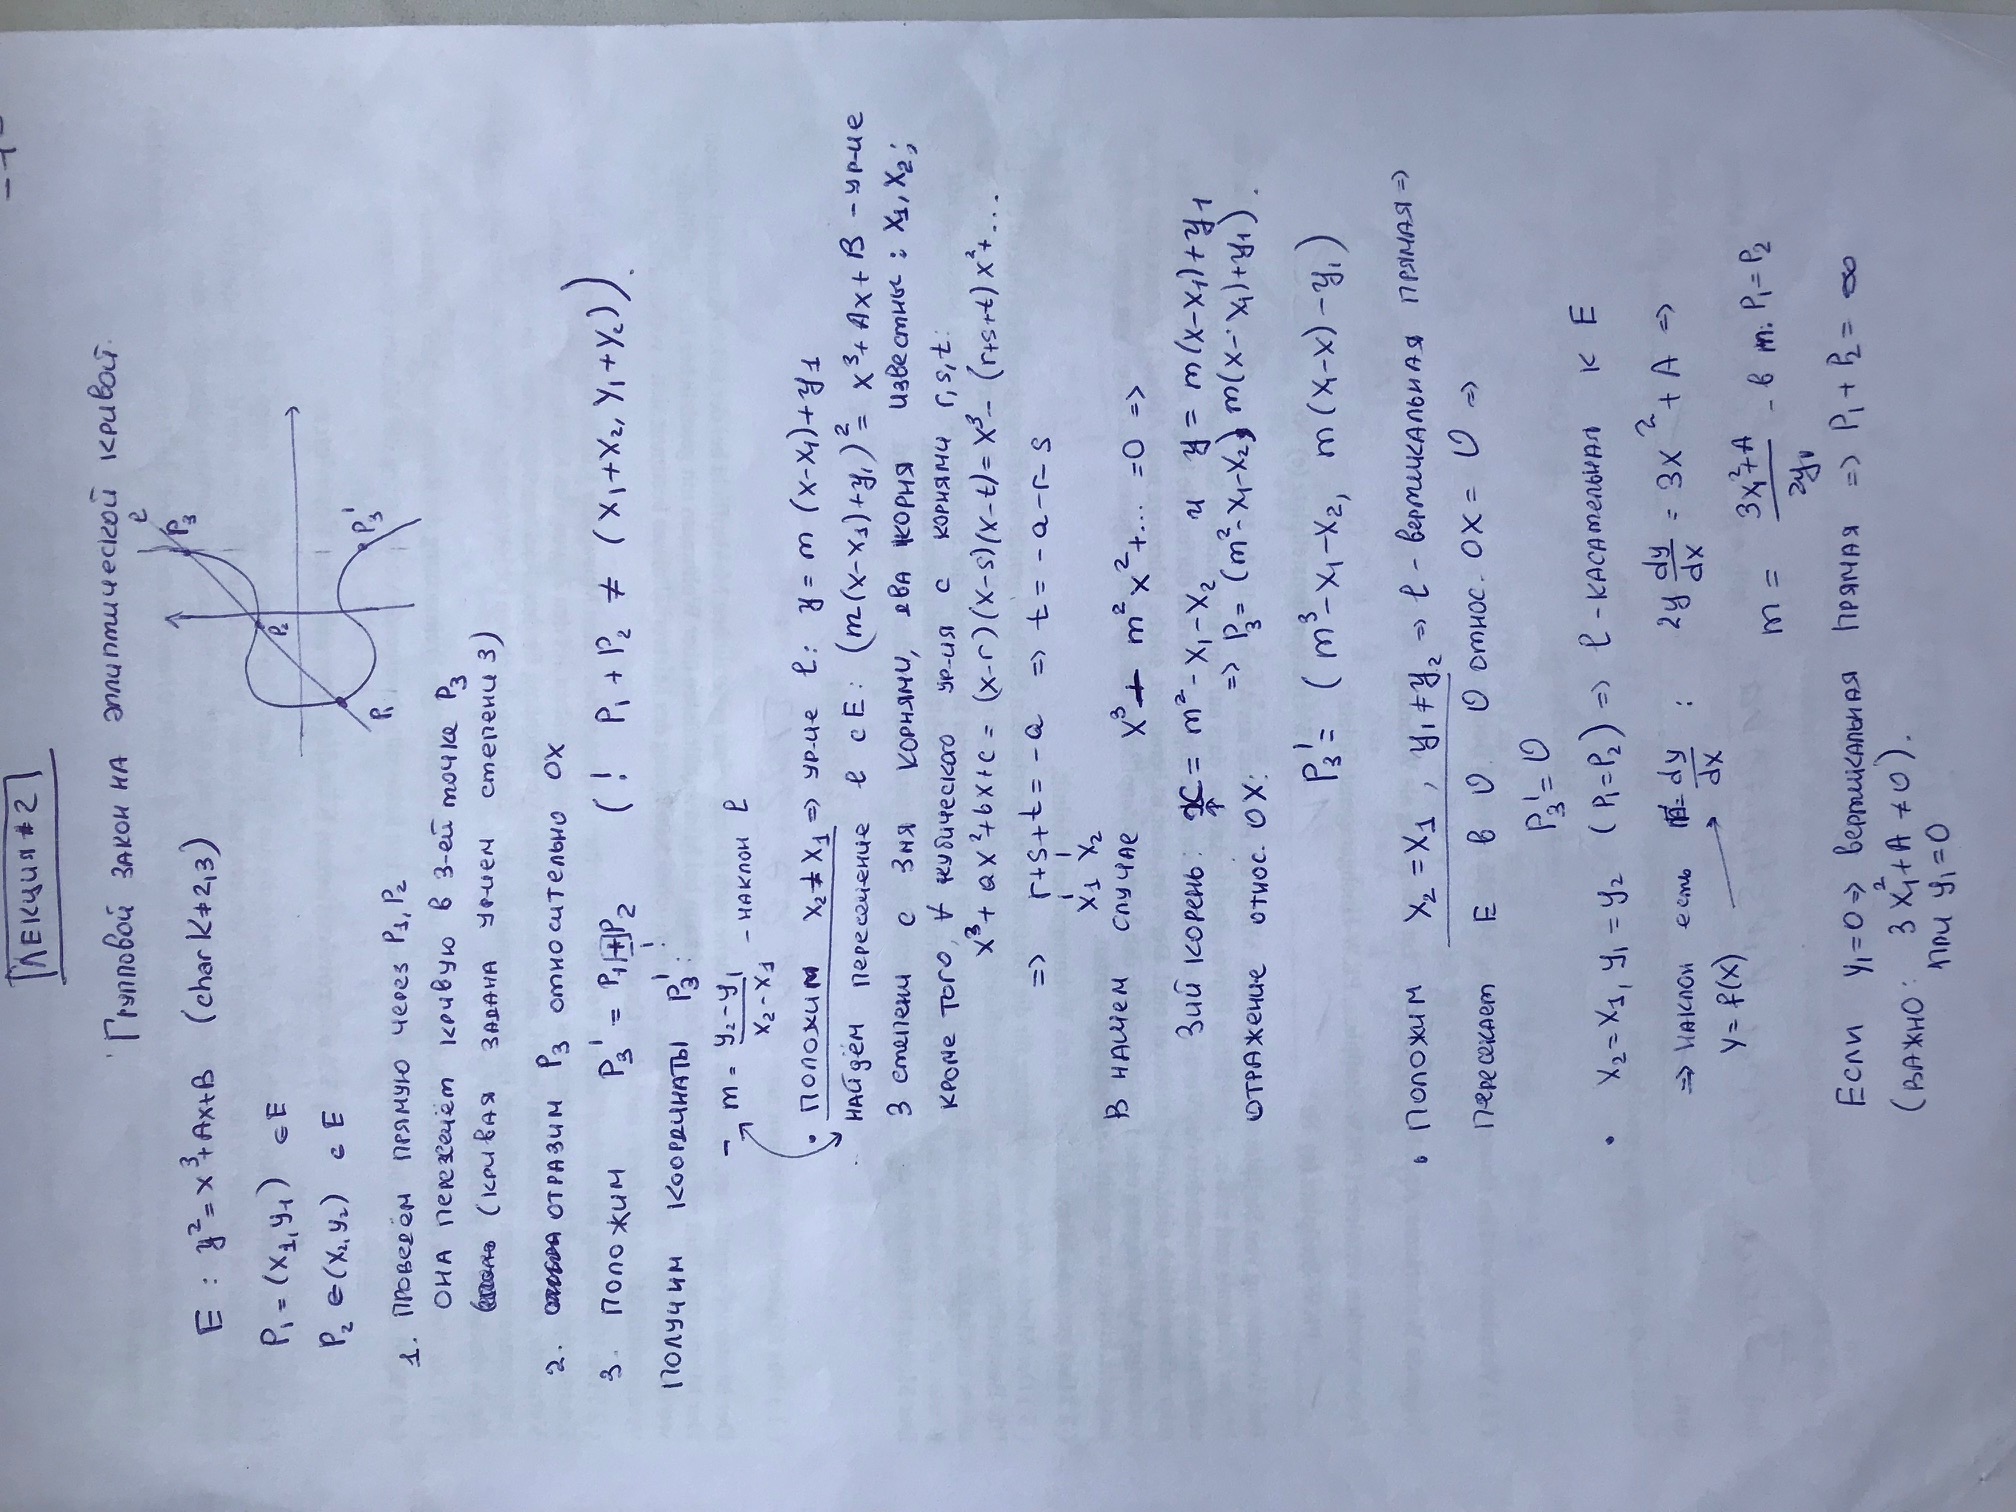 -1-
ЛЕКЦИЯ #2
Групповой закон на эллиптической кривой.
E : y² = x³+Ax+B (char K≠2,3)
P₁ = (x₁,y₁) ∈ E
P₂ ∈ (x₂,y₂) ∈ E
l
P₃
P₂
P₁
P₃'
1. Проведём прямую через P₁, P₂
она пересечёт кривую в 3-ей точке P₃
(кривая задана ур-ием степени 3)
2. отразим P₃ относительно OX
3. Положим P₃' = P₁ ⊞ P₂ (! P₁ + P₂ ≠ (x₁+x₂, y₁+y₂)).
Получим координаты P₃':
- m = (y₂-y₁)/(x₂-x₁) - наклон l
• Положим x₂≠x₁ ⇒ ур-ие l: y = m (x-x₁)+y₁
найдём пересечение l с E: (m(x-x₁)+y₁)² = x³+Ax+B - ур-ие
3 степени с 3мя корнями, два корня известны: x₁, x₂;
кроме того, ∀ кубического ур-ия с корнями r,s,t:
x³+ax²+bx+c = (x-r)(x-s)(x-t) = x³-(r+s+t)x²+...
⇒ r+s+t = -a ⇒ t = -a-r-s
x₁ x₂
В нашем случае x³ - m²x²+... =0 ⇒
3ий корень: x = m²-x₁-x₂ и y = m(x-x₁)+y₁
⇒ P₃ = (m²-x₁-x₂, m(x-x₁)+y₁).
отражение относ. OX:
P₃' = (m³-x₁-x₂, m(x₁-x)-y₁)
• Положим x₂ = x₁, y₁≠y₂ ⇒ l - вертикальная прямая ⇒
Пересекает E в O. O относ. OX = O ⇒
P₃' = O
• x₂=x₁, y₁=y₂ (P₁=P₂) ⇒ l - касательная к E
⇒ наклон есть m = dy/dx : 2y dy/dx = 3x² + A ⇒
y = f(x)
m = (3x₁²+A)/(2y₁) - в т. P₁=P₂
Если y₁=0 ⇒ вертикальная прямая ⇒ P₁+P₂ = ∞
(важно: 3x₁²+A ≠ 0).
при y₁=0